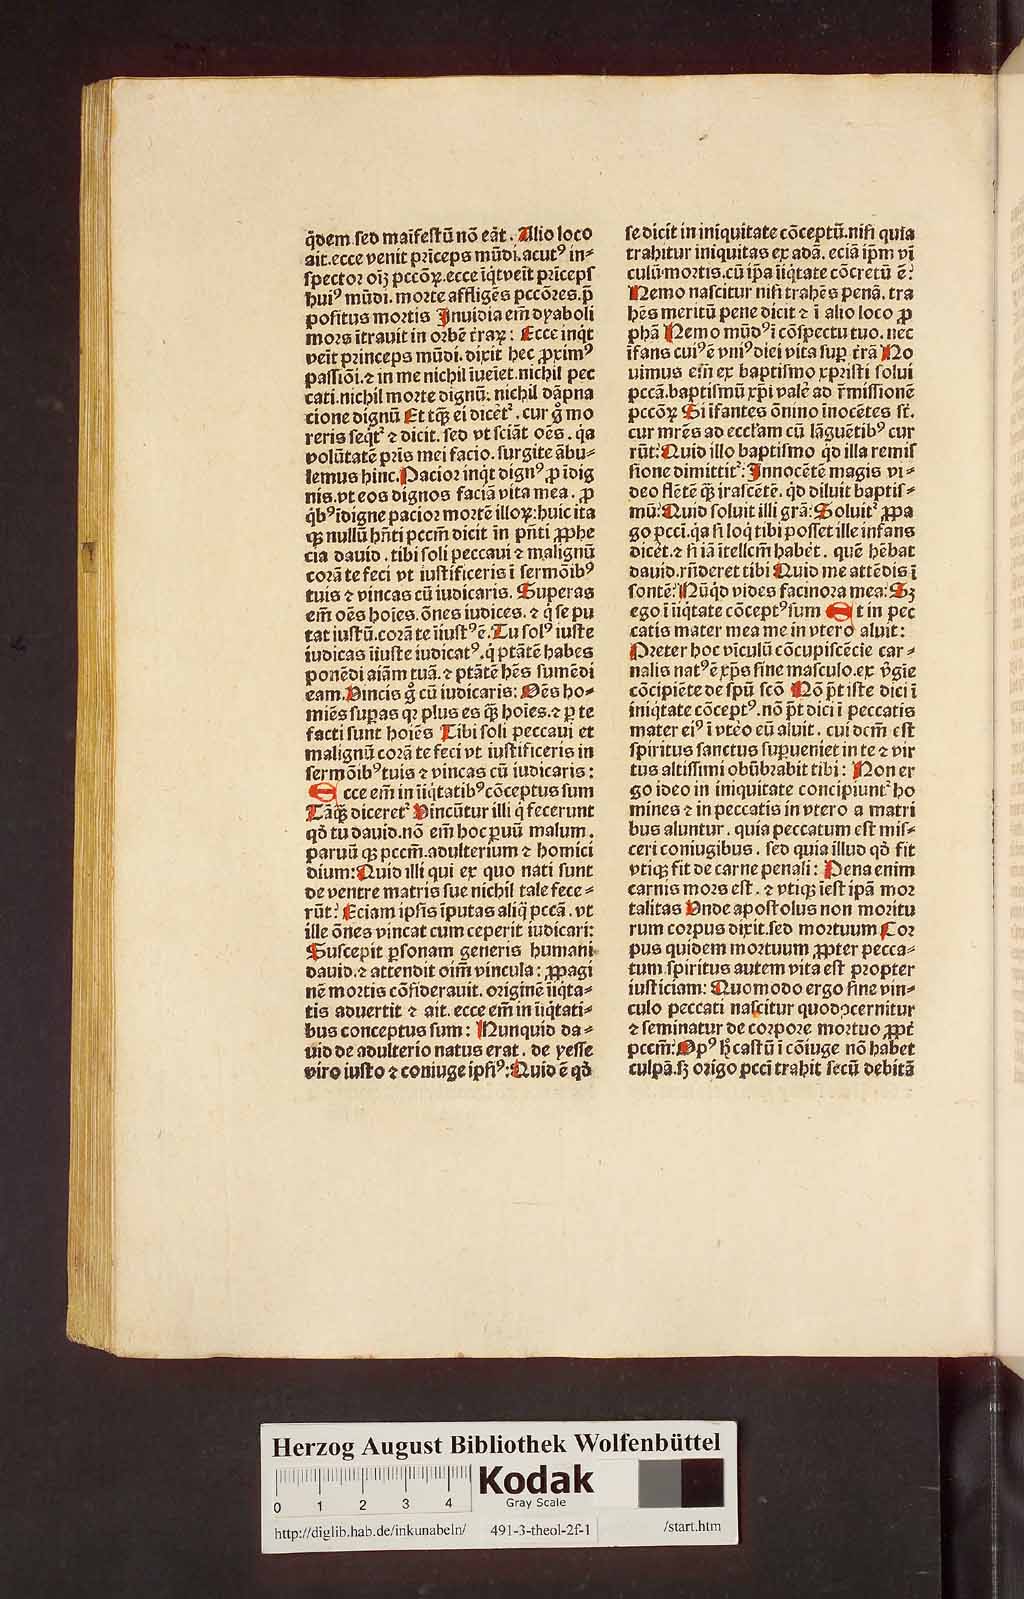 q̄dem sed maīfestū nō eāt. Alio loco
ait. ecce venit p̄riceps mūdi. acutꝰ in⸗
spector oīꝫ pccōꝝ. ecce īq̇t veīt p̄riceps
huiꝰ mūdi. morte affligēs pccōres. p̄
positus mortis Inuidia em̄ dyaboli
mors ītrauit in orbē t̄raꝝ: Ecce inq̇t
veīt princeps mūdi. dixit hec ꝓximꝰ
passiōi. ⁊ in me nichil īueīet. nichil pec
cati. nichil morte dignū: nichil dāpna
cione dignū Et tq̄ꝫ ei dicēt᷑. cur g̊ mo
reris seq̇t᷑ ⁊ dicit. sed vt sciāt oēs. q̇a
volūtatē pr̄is mei facio. surgite ābu⸗
lemus hinc. Pacior inq̇t dignꝰ ꝓ īdig
nis. vt eos dignos faciā vita mea. ꝓ
q̇bꝰ īdigne pacior mortē illoꝝ: huic ita
q̄ꝫ nullū hn̄ti pccm̄ dicit in pn̄ti ꝓphe
cia dauid. tibi soli peccaui ⁊ malignū
corā te feci vt iustificeris ī sermōibꝰ
tuis ⁊ vincas cū iudicaris. Superas
em̄ oēs hoīes. ōnes iudices. ⁊ q̇ se pu
tat iustū. corā te īiustꝰ ē. Tu solꝰ iuste
iudicas īiuste iudicatꝰ. q̇ ptātē habes
ponēdi aīām tuā. ⁊ ptātē hēs sumēdi
eam. Vincis g̊ cū iudicaris: Oēs ho⸗
miēs supas qꝛ plus es q̄ꝫ hoīes. ⁊ ꝑ te
facti sunt hoiēs Tibi soli peccaui et
malignū corā te feci vt iustificeris in
sermōibꝰ tuis ⁊ vincas cū iudicaris:
Ecce em̄ in īiq̇tatibꝰ cōceptus sum
Tāq̄ꝫ diceret᷑ Vincūtur illi q̇ fecerunt
qd̄ tu dauid. nō em̄ hoc ꝑuū malum.
paruū qꝫ pccm̄. adulterium ⁊ homici
dium: Quid illi qui ex quo nati sunt
de ventre matris sue nichil tale fece⸗
rūt: Eciam ipsis īputas aliq̇ pccā. vt
ille ōnes vincat cum ceperit iudicari:
Suscepit ꝑsonam generis humani
dauid. ⁊ attendit oīm̄ vincula: ꝓpagi
nē mortis cōsiderauit. originē īiq̇ta⸗
tis aduertit ⁊ ait. ecce em̄ in īiq̇tati⸗
bus conceptus sum: Nunquid da⸗
uid de adulterio natus erat. de yesse
viro iusto ⁊ coniuge ipsiꝰ: Quid ē qd̄
se dicit in iniquitate cōceptū. nisi quia
trahitur iniquitas ex adā. eciā ip̄m vī
culū mortis. cū ip̄a īiq̇tate cōcretū ē:
Nemo nascitur nisi trahēs penā. tra
hēs meritū pene dicit ⁊ ī alio loco ꝓ
phā Nemo mūdꝰ ī cōspectu tuo. nec
īfans cuiꝰ ē vniꝰ diei vita sup t̄rā No
uimus em̄ ex baptismo xpristi solui
pccā. baptismū xp̄i valē ad r̄missionē
pccōꝝ Si īfantes ōnino īnocētes st̄.
cur mr̄es ad eccl̄am cū lāguētibꝰ cur
rūt: Quid illo baptismo q̇d illa remis
sione dimittit᷑: Innocētē magis vi⸗
deo flētē q̄ꝫ irascētē. q̇d diluit baptis⸗
mū: Quid soluit illi grā: Soluit᷑ ꝓpa
go pcci. q̇a si loq̇ tibi posset ille infans
dicēt. ⁊ si iā ītellcm̄ habēt. quē hēbat
dauid. rn̄deret tibi Quid me attēdis ī
fontē: Nūq̇d vides facinora mea: Sꝫ
ego ī īiq̇tate cōceptꝰ sum Et in pec
catis mater mea me in vtero aluit:
Preter hoc vīculū cōcupiscēcie car⸗
nalis natꝰ ē xp̄s sine masculo. ex v̇gīe
cōcipiēte de spū scō Nō p̄t iste dici ī
iniq̇tate cōceptꝰ. nō p̄t dici ī peccatis
mater eiꝰ ī vtēo eū aluit. cui dcm̄ est
spiritus sanctus supueniet in te ⁊ vir
tus altissimi obūbrabit tibi: Non er
go ideo in iniquitate concipiunt᷑ ho
mines ⁊ in peccatis in vtero a matri
bus aluntur. quia peccatum est mis⸗
ceri coniugibus. sed quia illud qd̄ fit
vtiqꝫ fit de carne penali: Pena enim
carnis mors est. ⁊ vtiqꝫ īest ipā mor
talitas Vnde apostolus non moritu
rum corpus dixit. sed mortuum Cor
pus quidem mortuum ꝓpter pecca⸗
tum. spiritus autem vita est propter
iusticiam: Quomodo ergo sine vin⸗
culo peccati nascitur quod ↄcernitur
⁊ seminatur de corpore mortuo ꝓpt̄
pccm̄: Opꝰ h̄ castū ī cōiuge nō habet
culpā. sꝫ origo pccī trahit secū debitā
Herzog August Bibliothek Wolfenbüttel
0 1 2 3 4
Kodak
Gray Scale
http://diglib.hab.de/inkunabeln/ 491-3-theol-2f-1 /start.htm